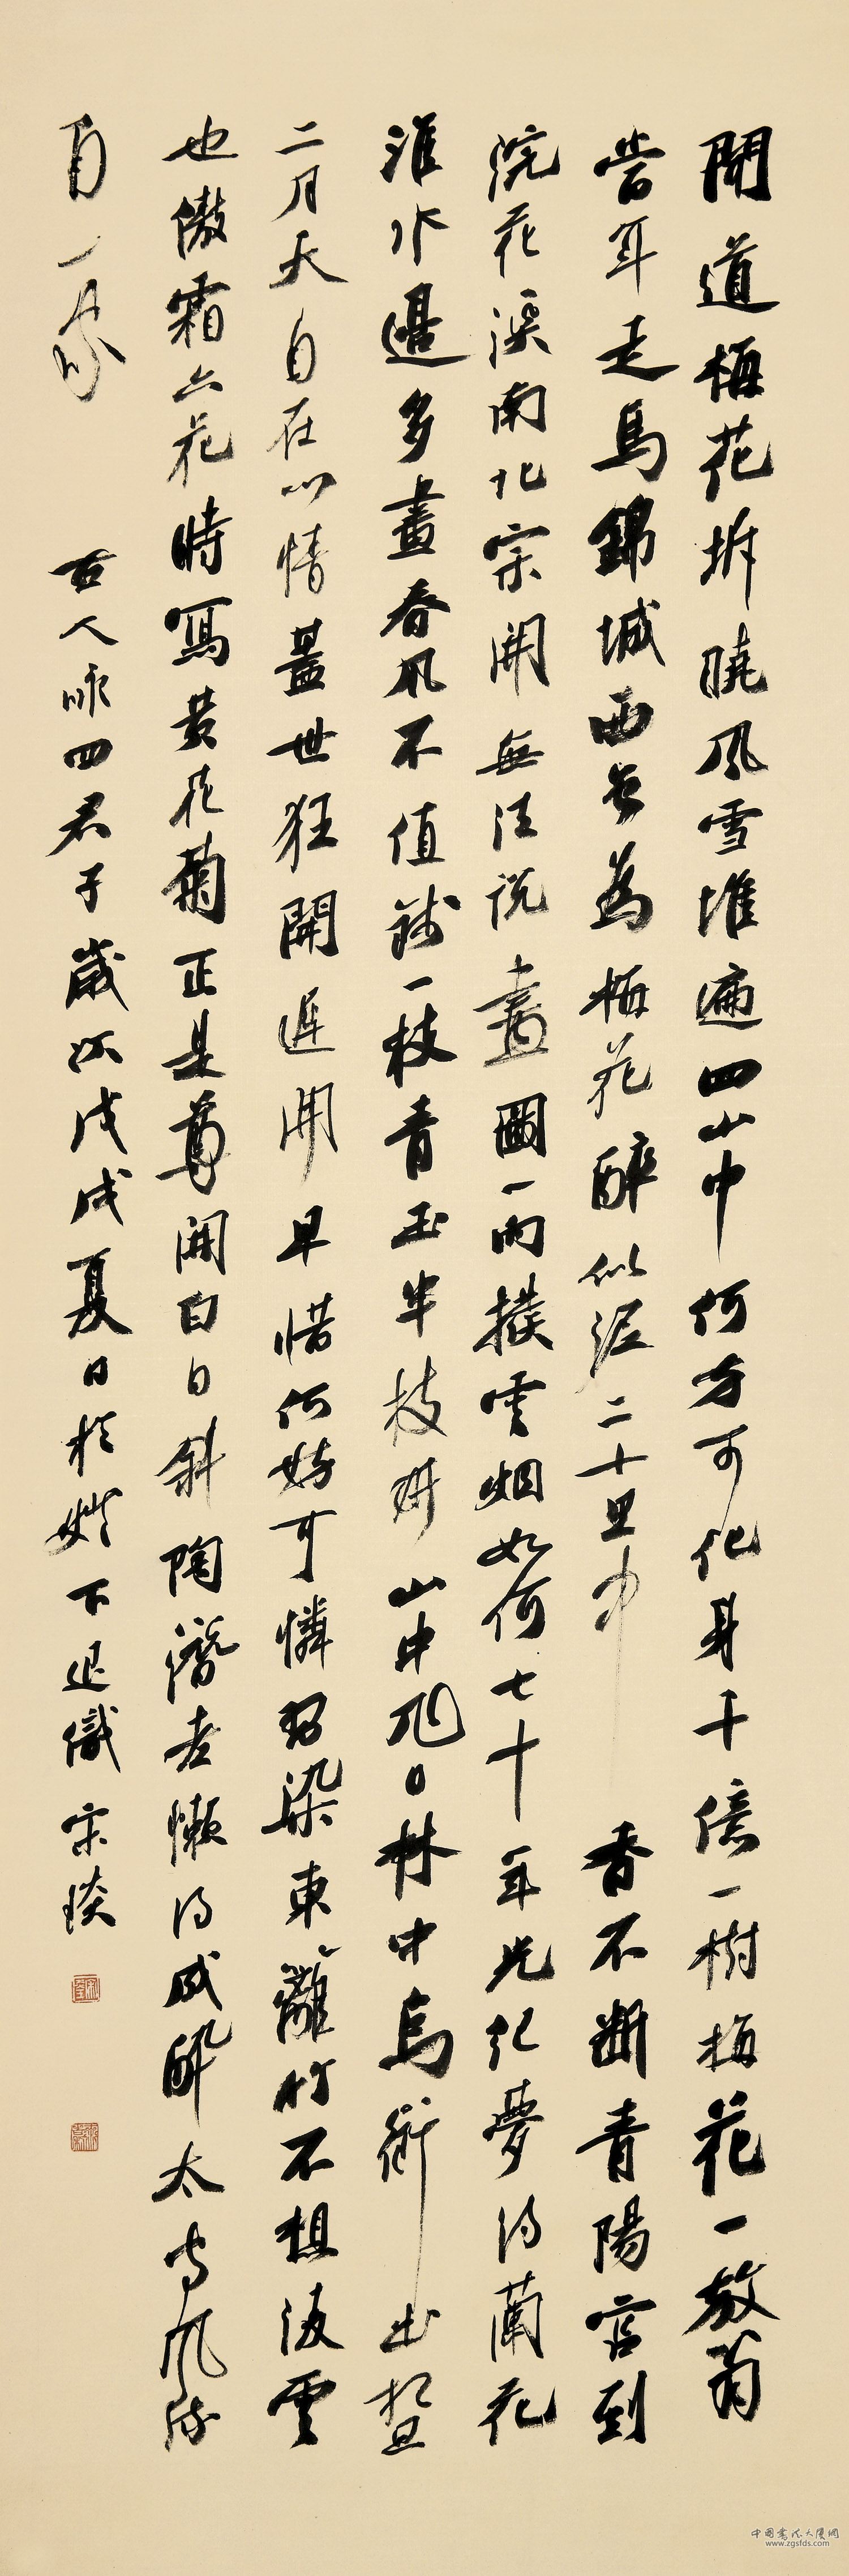 聞道梅花坼曉風雪堆遍四山中何方可化身千億一樹梅花一放翁
當年走馬錦城西曾為梅花醉似泥二十里中香不斷青陽宮到
浣花溪南北宗開無法說畫圖一向撥雲烟如何七十年光紀夢得蘭花
淮水邊多畫春風不值錢一枝青玉半枝妍山中旭日林中鳥銜出
二月天自在心情蓋世狂開遲開早惜何妨可憐習染東籬竹不想凌雲
也傲霜六花時寫黃花菊正是尊開白日斜陶潛老懶得成醉太守風流
自一家
古人咏四君子歲次戊戌夏日於 下退 宋琰
中国书法大厦网
www.zgsfds.com